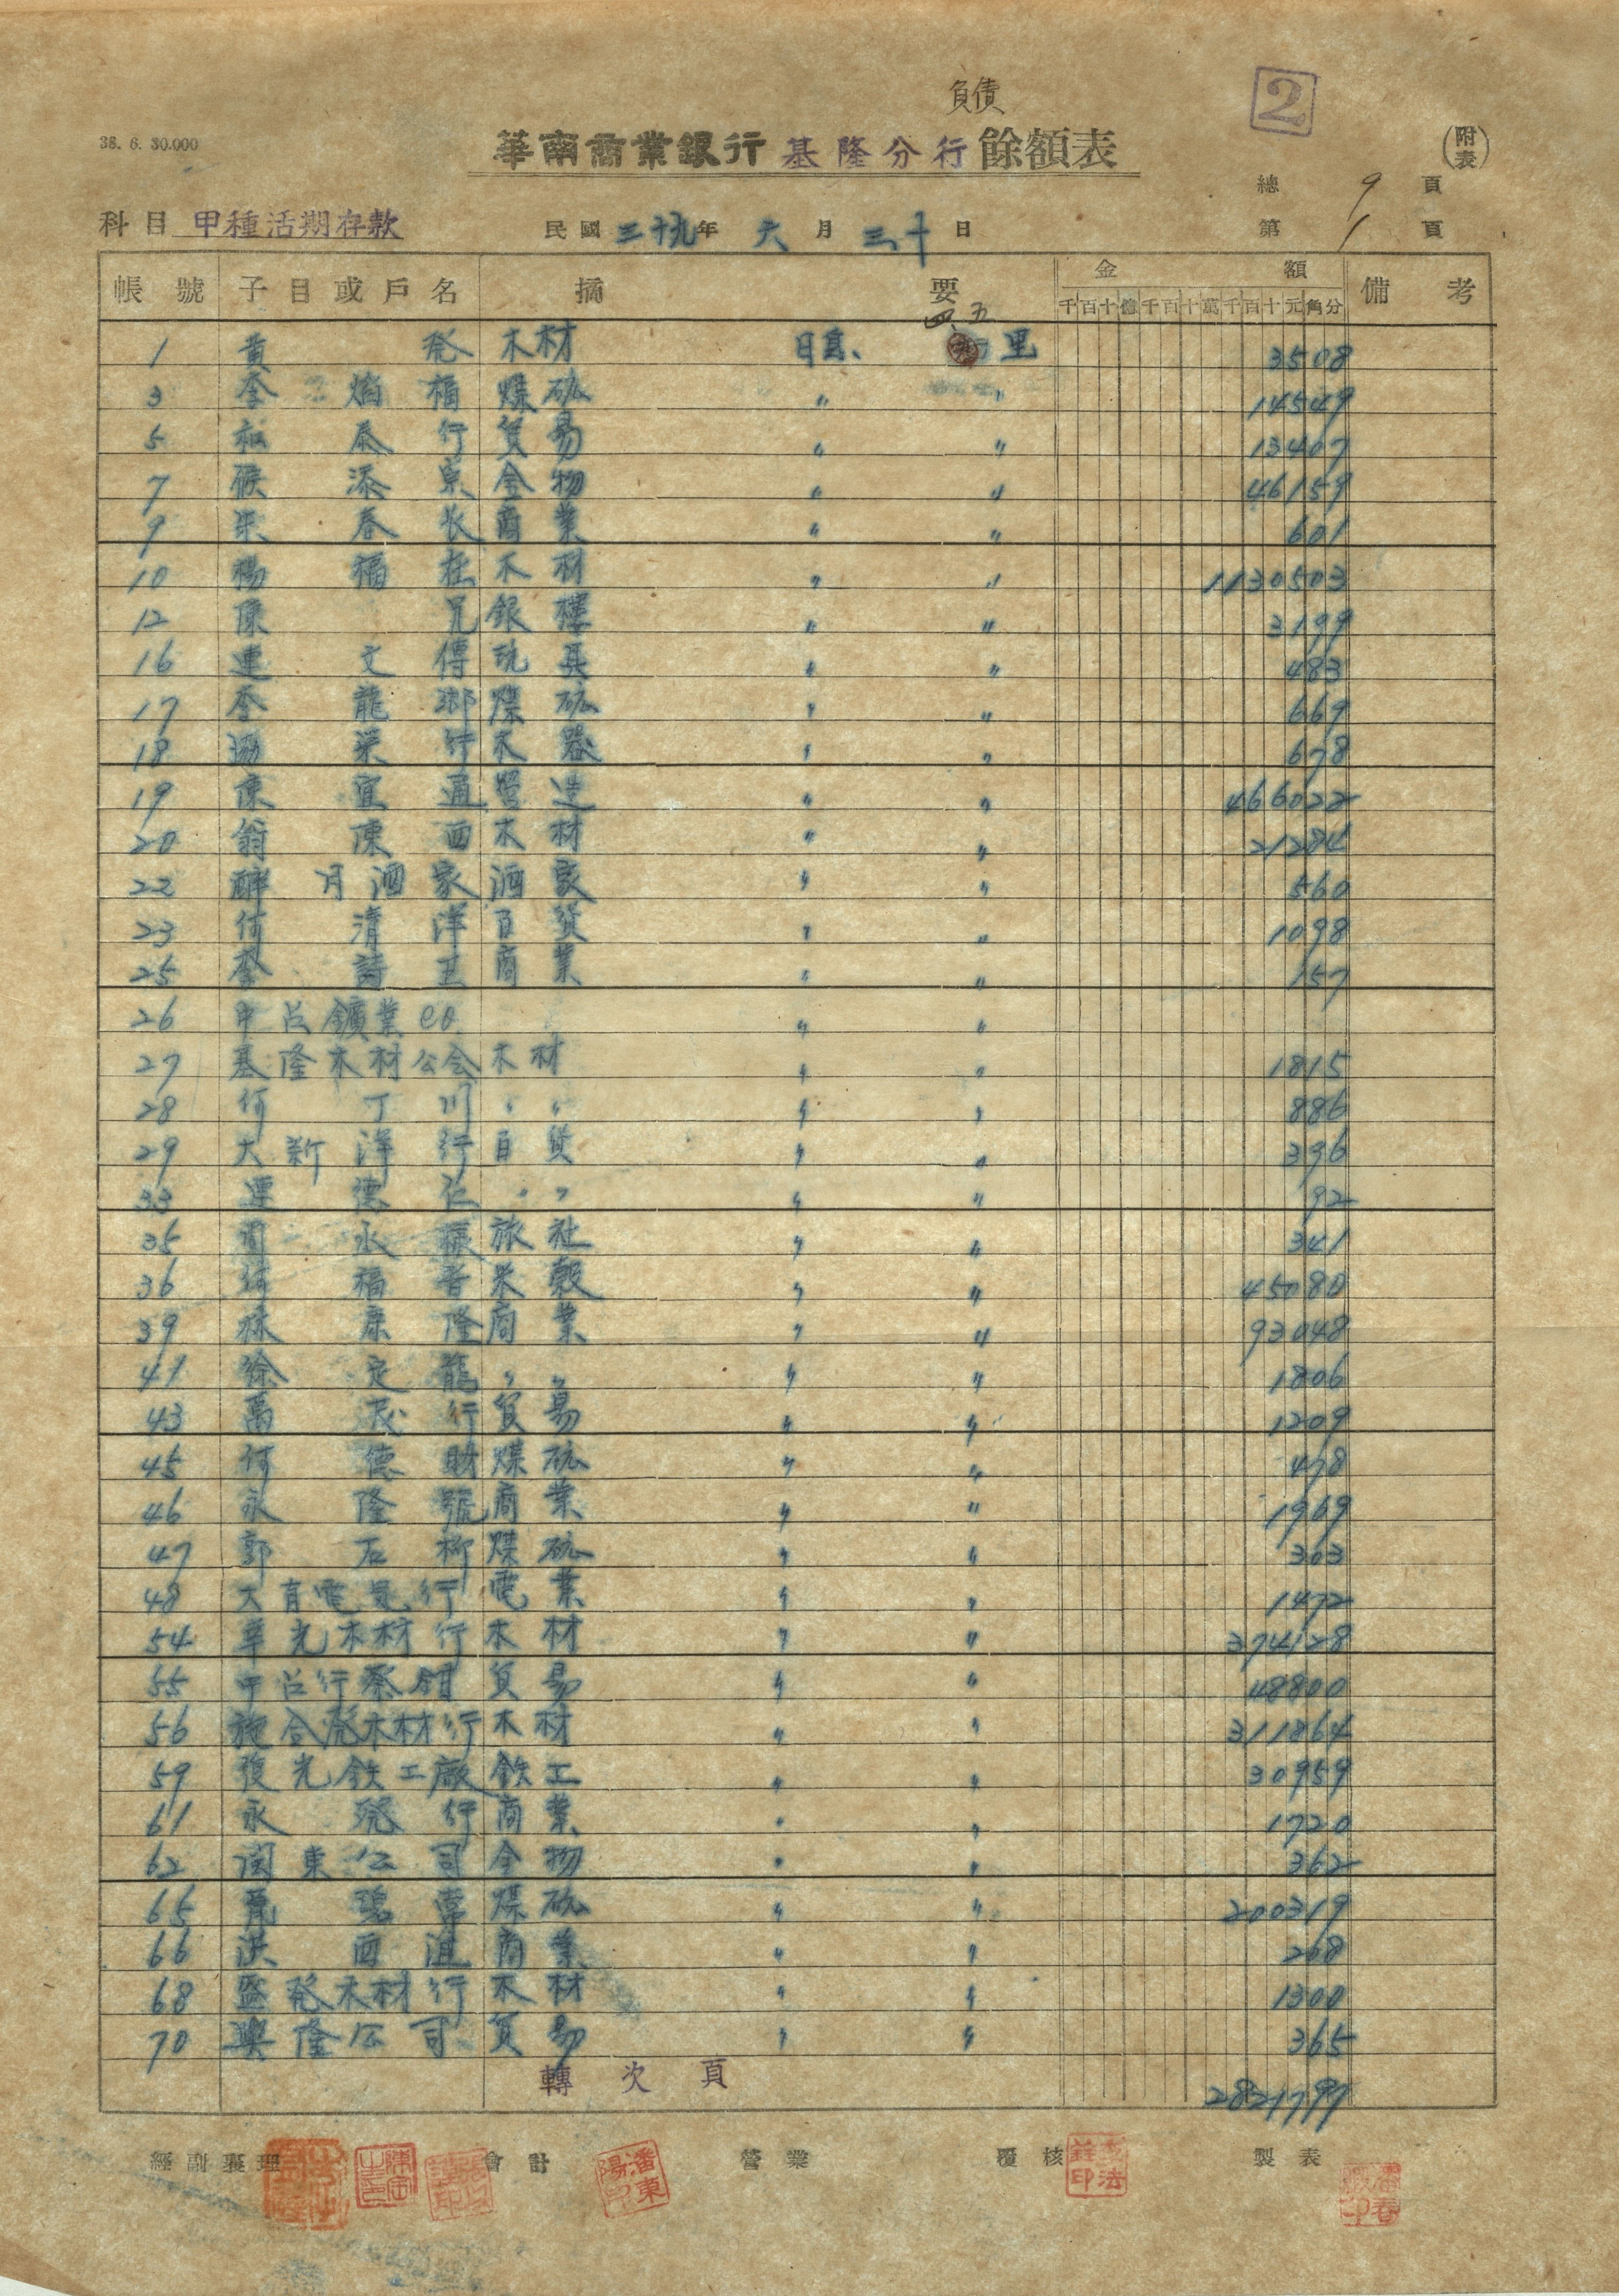 負債
2
38. 6. 30.000
華南商業銀行 基隆分行 餘額表
(附表)
總 9 頁
科目 甲種活期存款
民國 三十九年 六月 三十日
第 1 頁
帳號 子目或戶名 摘要 金額 備考
千百十億千百十萬千百十元角分
四、五
1 黃 發 木材 日息、 里 3508
3 李 福 煤砿 〃 〃 14549
5 泰行 貿易 〃 〃 13407
7 添 金物 〃 〃 46159
9 朱春長 商業 〃 〃 601
10 楊福在 木材 〃 〃 1130503
12 陳兄 銀樓 〃 〃 3199
16 連文傳 玩具 〃 〃 483
17 李龍 煤砿 〃 〃 669
18 協榮行 木器 〃 〃 678
19 陳宜通 營造 〃 〃 466022
20 翁陳西 木材 〃 〃 21284
22 醉月酒家 酒家 〃 〃 560
23 何清洋 百貨 〃 〃 1098
25 李詩 商業 〃 〃 157
26 中台鑛業co 〃 〃
27 基隆木材公会 木材 〃 〃 1815
28 何丁川 〃 〃 〃 〃 886
29 大新洋行 百貨 〃 〃 396
33 連德仁 〃 〃 〃 〃 92
35 周永 旅社 〃 〃 341
36 何福香 米穀 〃 〃 45080
39 林康隆 商業 〃 〃 93048
41 徐定龍 〃 〃 〃 〃 1806
43 萬茂行 貿易 〃 〃 1209
45 何德財 煤砿 〃 〃 478
46 永隆號 商業 〃 〃 1969
47 郭石柳 煤砿 〃 〃 303
48 大有電氣行 電業 〃 〃 1472
54 華光木材行 木材 〃 〃 374128
55 中台行蔡 貿易 〃 〃 48800
56 施合發木材行 木材 〃 〃 311864
59 復光鉄工廠 鉄工 〃 〃 30959
61 永發行 商業 〃 〃 1720
62 閩東公司 金物 〃 〃 362
65 常 煤砿 〃 〃 200319
66 洪酉 商業 〃 〃 268
68 盛發木材行 木材 〃 〃 1300
70 興隆公司 貿易 〃 〃 365
轉次頁 2821797
經副襄理 會計 潘東陽印 營業 覆核 製表